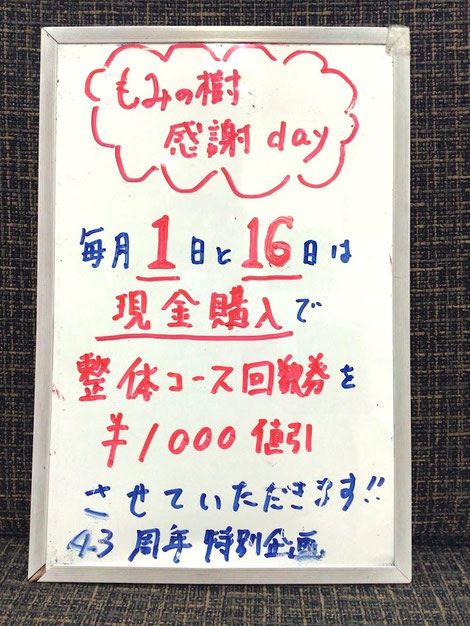 もみの樹
感謝day
毎月1日と16日は
現金購入で
整体コース回数券を
¥1000値引
させていただきます!!
4.3周年特別企画